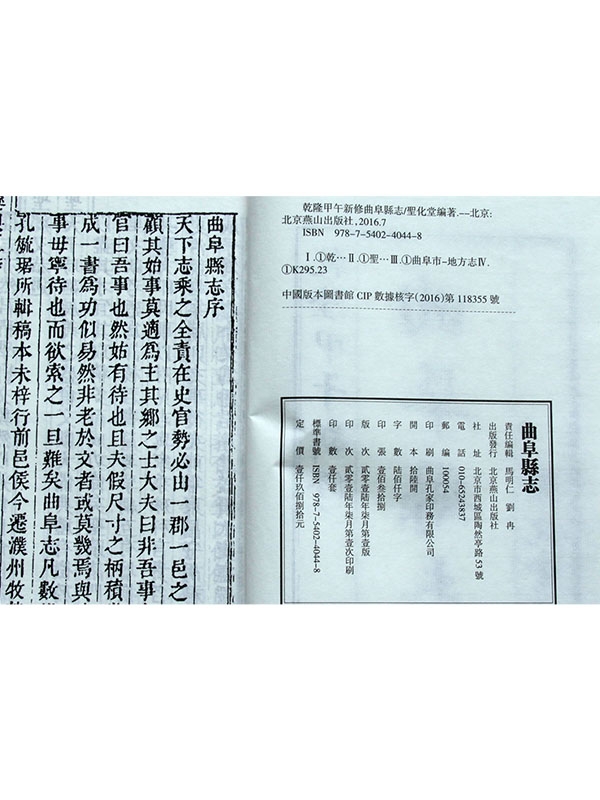 乾隆甲午新修曲阜縣志/聖化堂編著.--北京:
北京燕山出版社,2016.7
ISBN 978-7-5402-4044-8
Ⅰ.①乾…Ⅱ.①聖…Ⅲ.①曲阜市-地方志Ⅳ.
①K295.23
中國版本圖書館CIP數據核字(2016)第118355號
曲阜縣志
責任編輯 馬明仁 劉冉
出版發行 北京燕山出版社
社址 北京市西城區陶然亭路53號
電話 010-65243837
郵編 100054
印刷 曲阜孔家印務有限公司
開本 拾陸開
字數 陸佰仟字
印張 壹佰叁拾捌
版次 貳零壹陸年柒月第壹版
印次 貳零壹陸年柒月第壹次印刷
印數 壹仟套
標準書號 ISBN 978-7-5402-4044-8
定價 壹仟玖佰捌拾元
曲阜縣志序
天下志乘之全責在史官勢必由一郡一邑之
顧其始事莫適為主其鄉之士大夫曰非吾事
官曰吾事也然姑有待也且夫假尺寸之柄積
成一書為功似易然非老於文者或莫幾焉與
事毋寧待也而欲索之一旦難矣曲阜志凡數
孔毓琚所輯稿本未梓行前邑侯今遷濮州牧